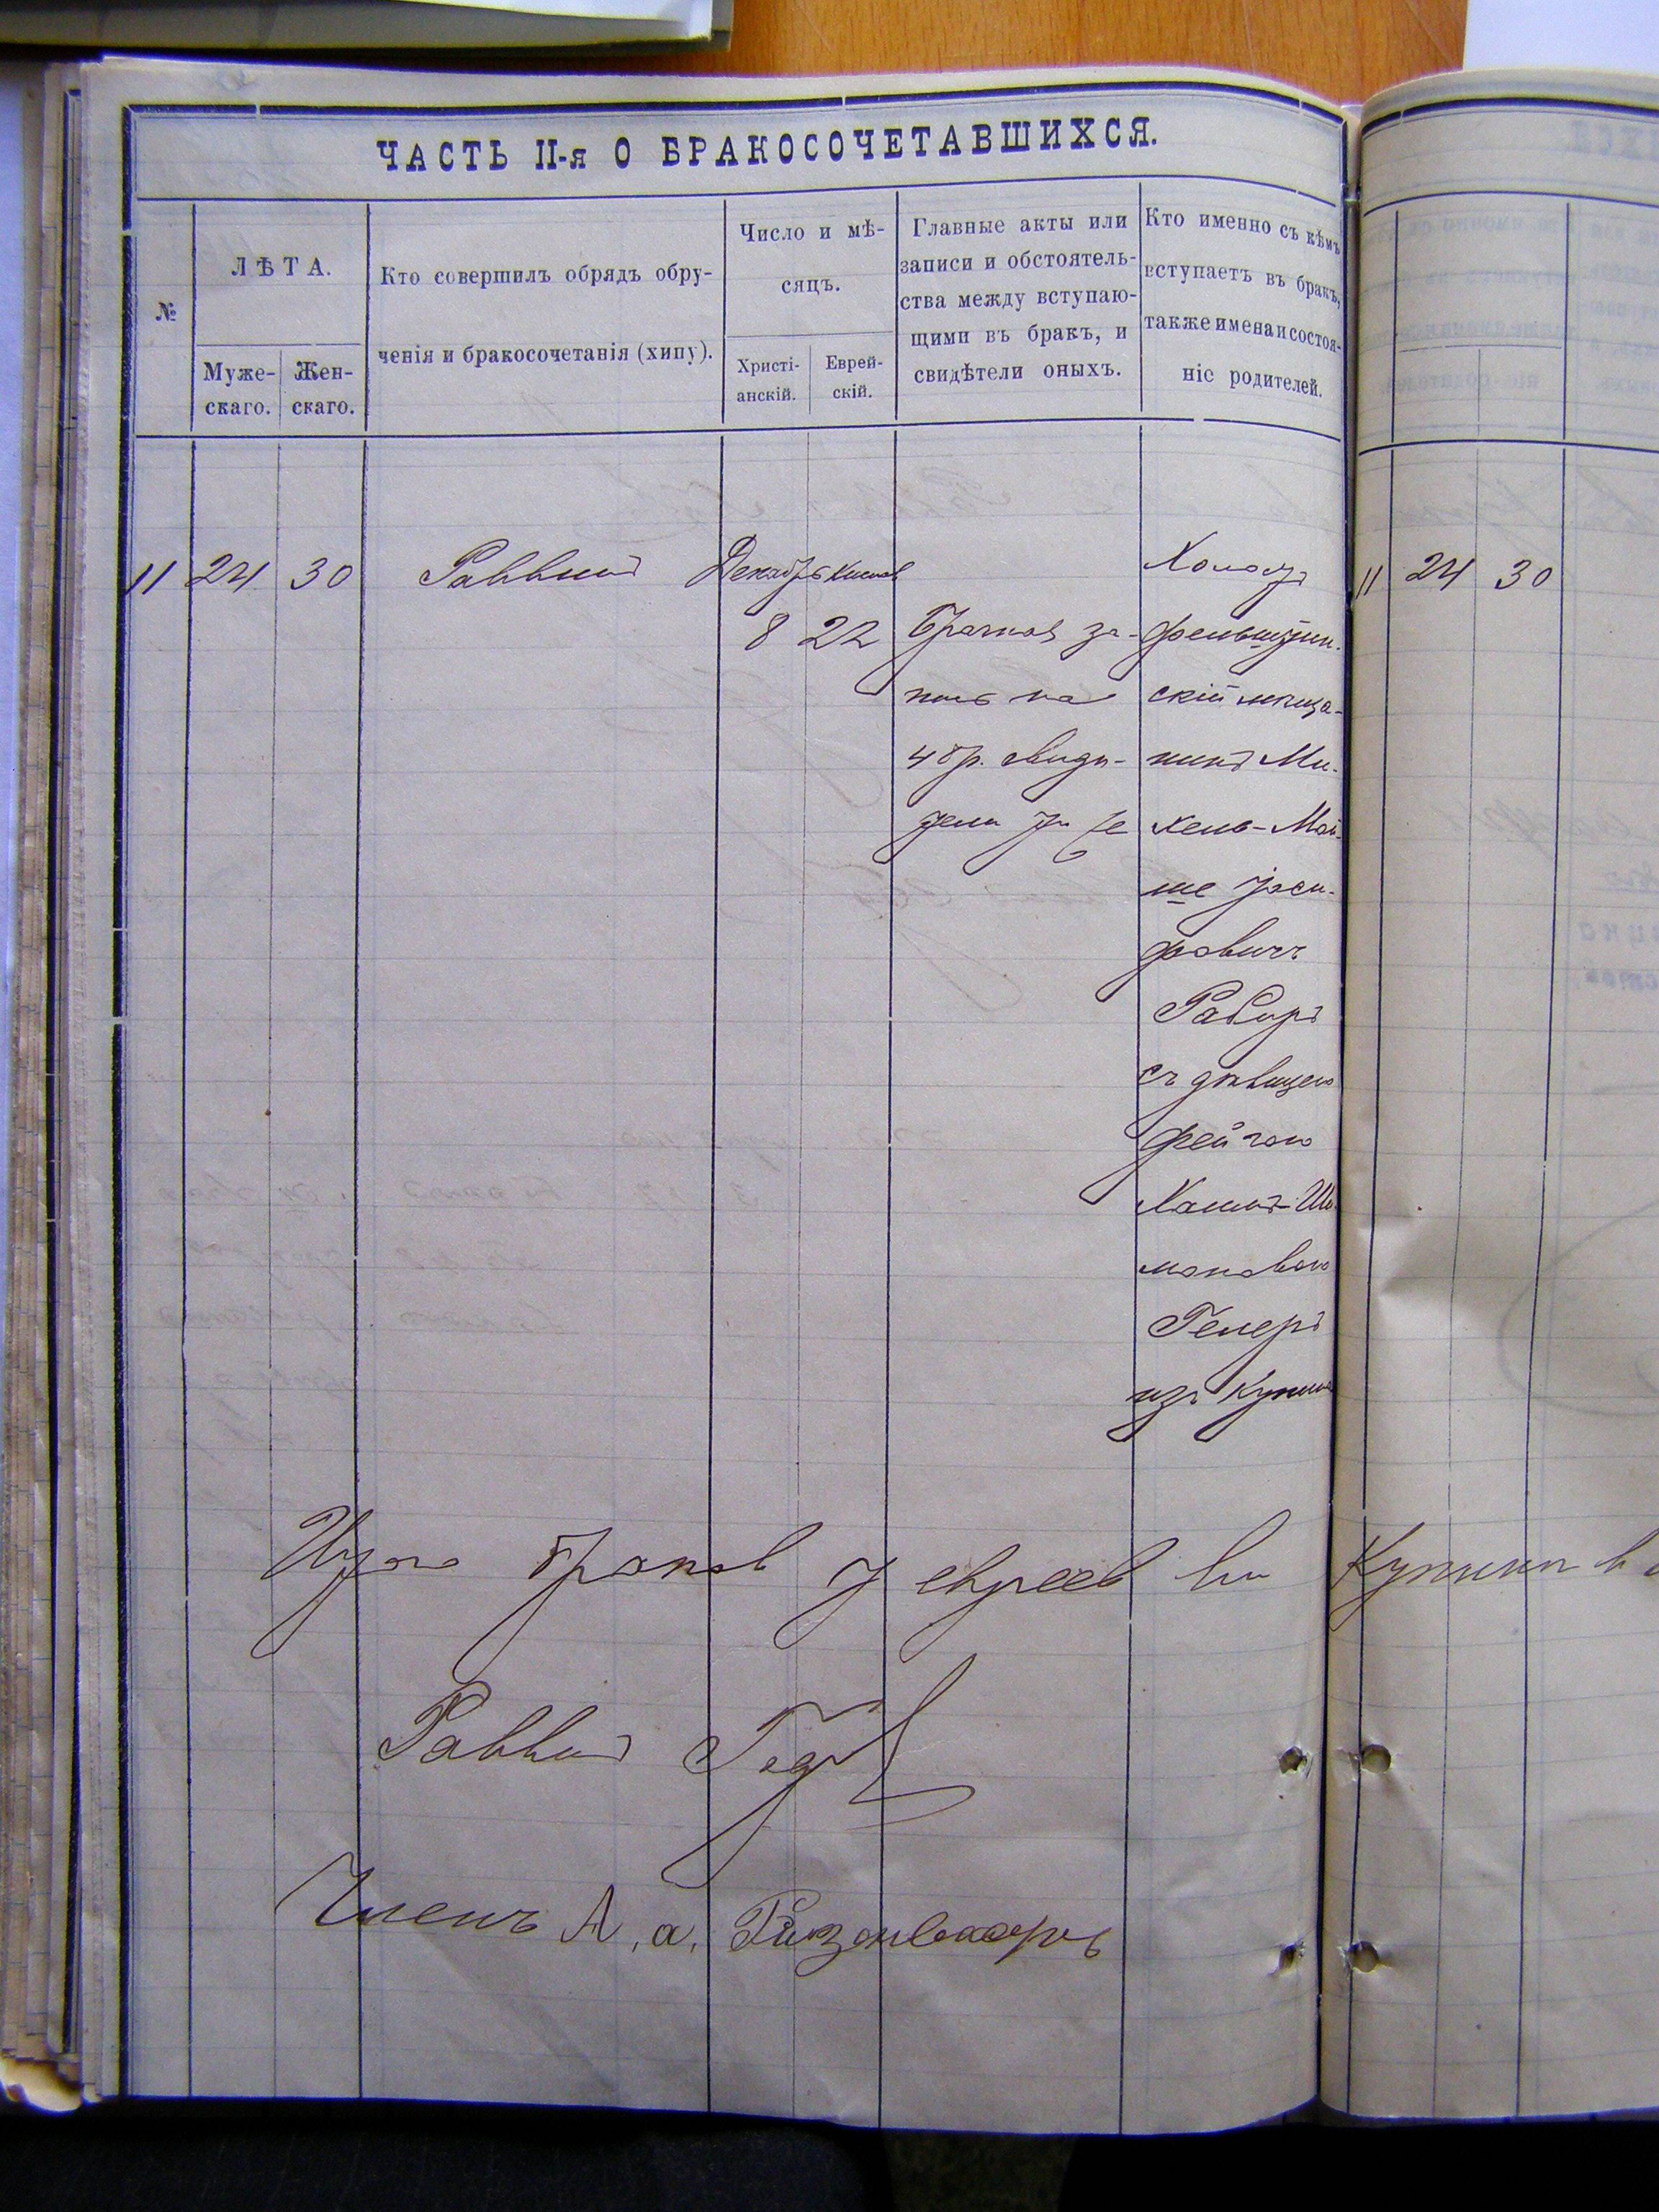 ЧАСТЬ II-я О БРАКОСОЧЕТАВШИХСЯ.
№
ЛѢТА.
Муже-
скаго.
Жен-
скаго.
Кто совершилъ обрядъ обру-
ченія и бракосочетанія (хипу).
Число и мѣ-
сяцъ.
Христі-
анскій.
Еврей-
скій.
Главные акты или
записи и обстоятель-
ства между вступаю-
щими въ бракъ, и
свидѣтели оныхъ.
Кто именно съ кѣмъ
вступаетъ въ бракъ,
также имена и состоя-
ніе родителей.
11 24 30 Раввинъ Декабрь Кислев
8 22
Брачная за-
пись на
48 р. свидѣ-
тели
Холост
фельштин-
скій мѣща-
нинъ Ми-
хель-Мой-
ше Іоси-
фовичъ
съ дѣвицею
Фейгою
Хаимъ-Шло-
моновою
Гелеръ
изъ Купина
11 24 30
Итого браков у евреев въ Купинѣ в
Раввинъ
Членъ А. а.